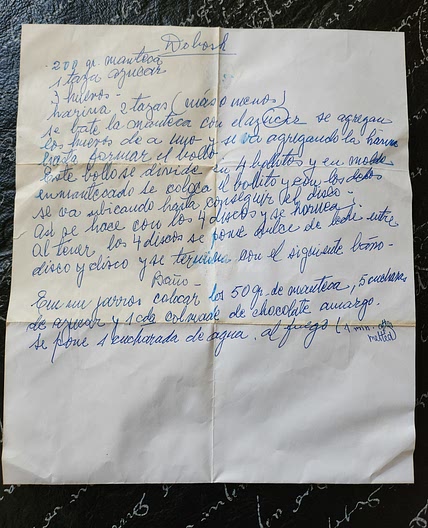 Dobosh
200 gr. manteca
1 taza azucar
3 huevos -
harina 2 tazas (más o menos)
se bate la manteca con el azucar se agregan
los huevos de a uno y se va agregando la harina
hasta formar el bollo
Este bollo se divide en 4 bollitos y en molde
enmantecado se coloca el bollito y con los dedos
se va ubicando hasta conseguir el disco -
Asi se hace con los 4 discos y se hornea.
Al tener los 4 discos se pone dulce de leche entre
disco y disco y se termina con el siguiente baño -
Baño -
En un jarros colocar los 50 gr. de manteca, 5 cucharas
de azucar y 1 cda colmada de chocolate amargo.
se pone 1 cucharada de agua. al fuego (1 min.
melted